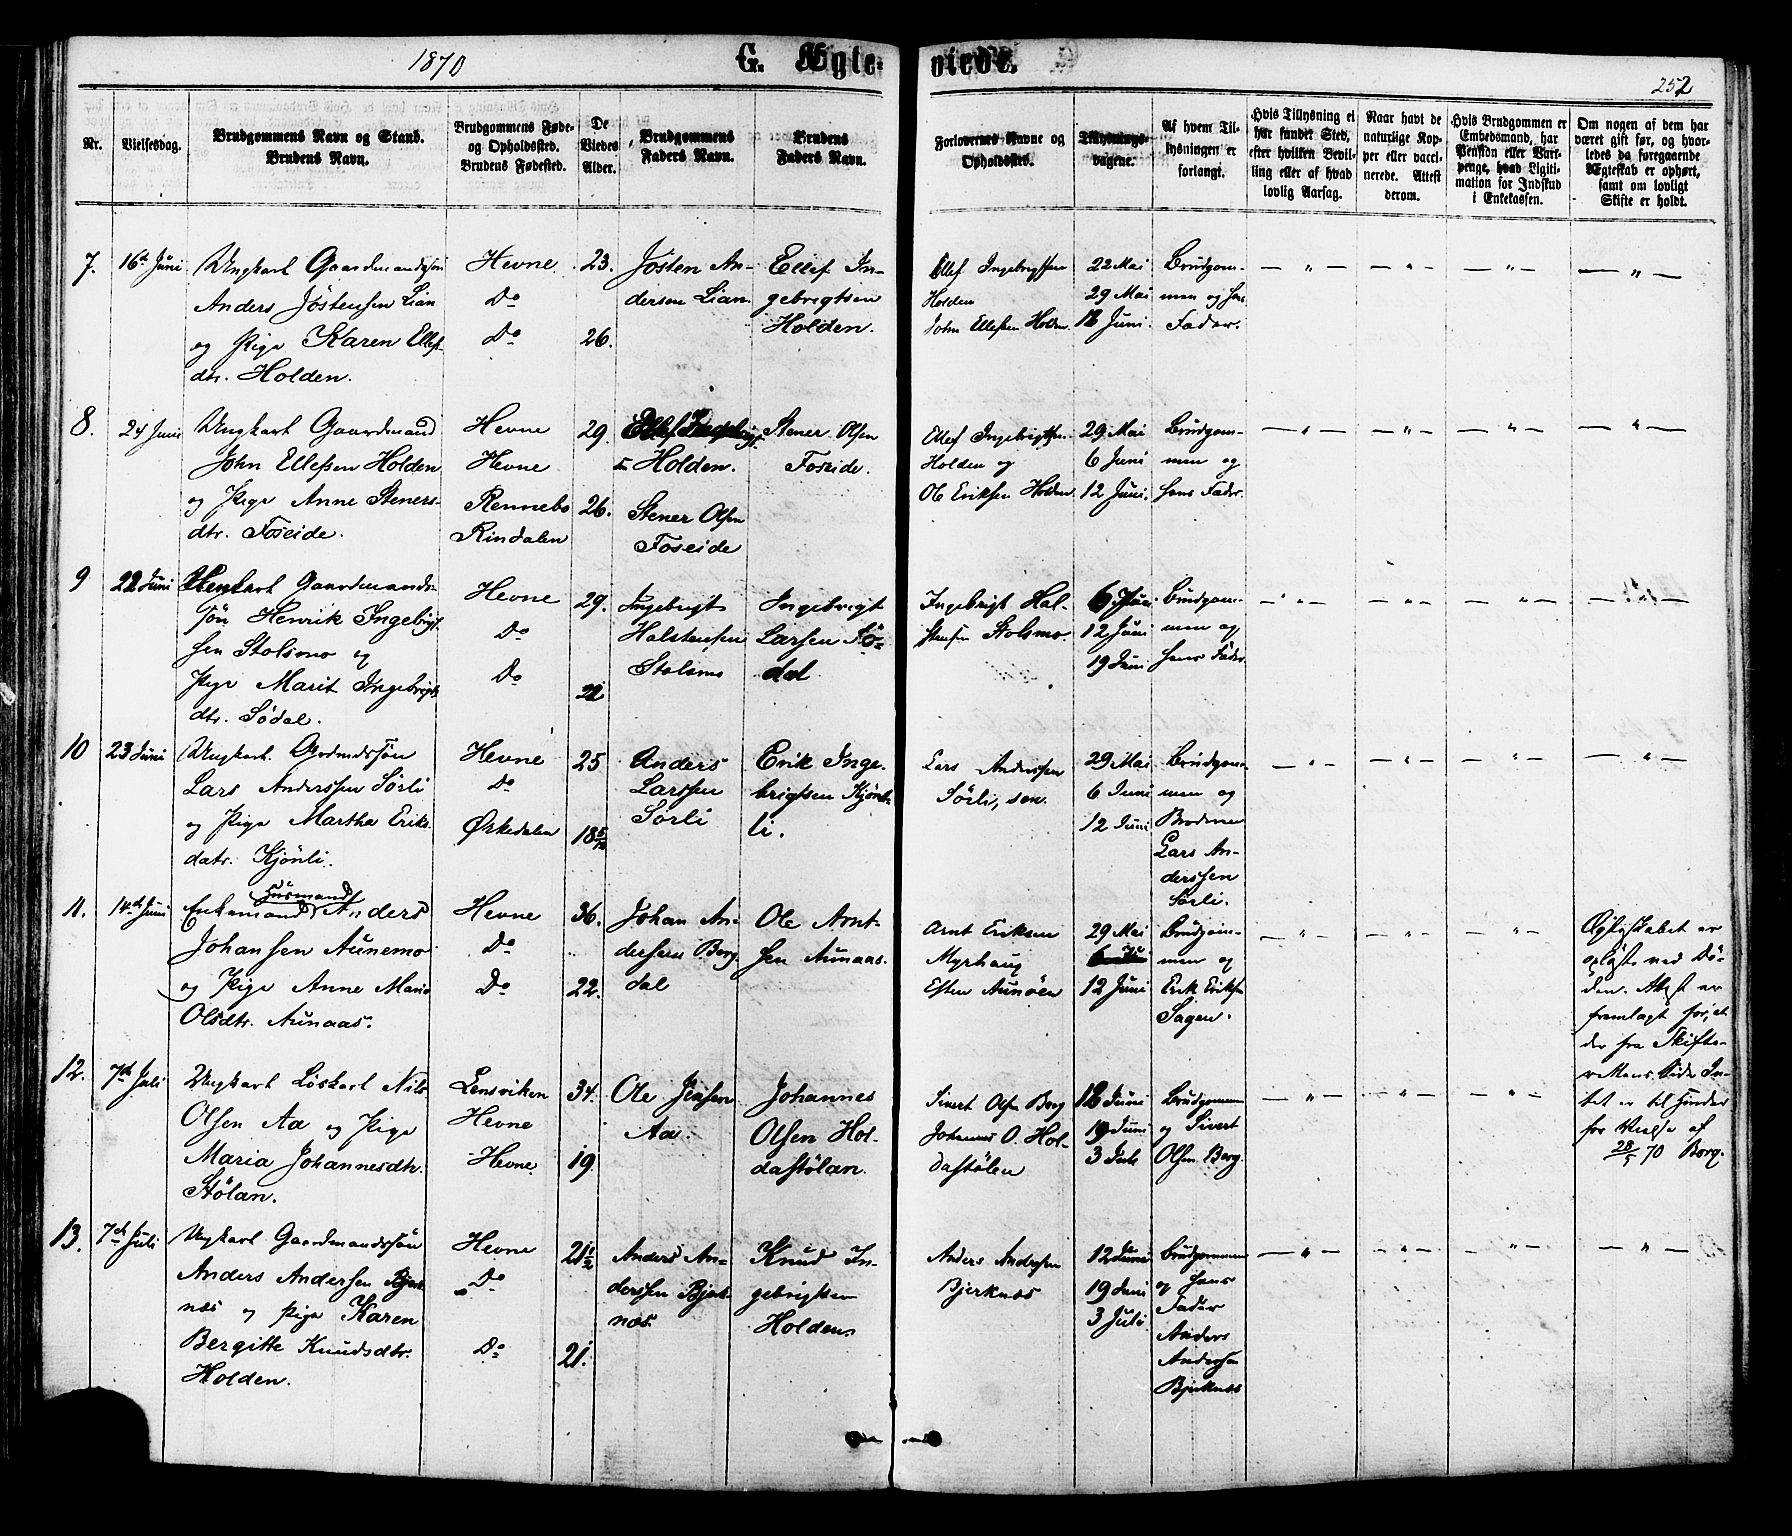 1870
G. Ægte-
viede.
252
Nr.
Vielsesdag.
Brudgommens Navn og Stand.
Brudens Navn.
Brudgommens Føde-
og Opholdssted.
Brudens Fødested.
De
Viedes
Alder.
Brudgommens
Faders Navn.
Brudens
Faders Navn.
Forlovernes Navne og
Opholdssted.
Tillysnings-
dagene.
Af hvem Til-
lysningen er
forlangt.
Hvis Tillysning ei
har fundet Sted,
efter hvilken Bevil-
ling eller af hvad
lovlig Aarsag.
Naar havt de
naturlige Kop-
per eller vacci-
nerede. Attest
derom.
Hvis Brudgommen er
Embedsmand, har
Pension eller Vart-
penge, hvad Ligiti-
mation for Indskud
i Enkekassen.
Om nogen af dem har
været gift før, og hvor-
ledes da foregaaende
Ægteskab er ophørt,
samt om lovligt
Skifte er holdt.
7.
16de Juni
Ungkarl Gaardmandssøn
Anders Jöstensen Lian
og Pige Karen Ellefs-
dtr. Holden.
Hevne
Do
Do
23.
26.
Jösten An-
dersen Lian
Ellef In-
gebrigtsen
Holden.
Ellef Ingebrigtsen
Holden
John Ellefsen Holden
22 Mai
29 Mai
12 Juni.
Brudgom-
men og hans
Fader.
8.
24 Juni
Ungkarl Gaardmand
John Ellefsen Holden
og Pige Anne Steners-
dtr. Foseide.
Hevne
Hevne
Rennebo
Rindalen
29.
26.
Ellef Ingebrigt-
sen Holden.
Stener Olsen
Foseide
Stener Olsen
Foseide.
Ellef Ingebrigtsen
Holden og
Ole Eriksen Holden
29 Mai
6 Juni
12 Juni.
Brudgom-
men og
hans Fader.
9
22 Juni
Ungkarl Gaardmands-
søn Henrik Ingebrigt-
sen Stolsmo og
Pige Marit Ingebrigts
dtr. Södal.
Hevne
Do
Do
29.
22
Ingebrigt
Halstensen
Stolsmo
Ingebrigt
Larsen Sö-
dal
Ingebrigt Hal-
stensen Stolsmo.
6 Juni
12 Juni
19 Juni
Brudgom-
men og
hans Fader.
10
23 Juni
Ungkarl. Grdmdssøn
Lars Anderssen Sörli
og Pige Martha Eriks
datr. Kjönli.
Hevne
Do
Ørkedalen
25
18 5/12
Anders
Larssen
Sörli
Erik Inge-
brigtsen Kjön-
li.
Lars Anderssen
Sörli, sen.
29 Mai
6 Juni
12 Juni
Brudgom-
men og
Broderen
Lars An-
derssen
Sörli.
11.
14de Juni
Husmand
Enkemand Anders
Johansen Aunemo
og Pige Anne Maria
Olsdtr. Aunaas.
Hevne
Do
Do
36.
22.
Johan An-
derssen Berg
dal
Ole Arnt-
sen Aunaas.
Arnt Eriksen
Myrhaug
Esten Aunöien
29 Mai
6 Juni
12 Juni
Brudgom-
men og
Erik Eriksen
Sagen.
Ægteskabet er
oplöst ved Dö-
den. Attest er
fremlagt for, at
der fra Skifte-
rettens Side In-
tet er til Hinder
for Vielse af
28/5 70 Borg.
12.
7de Juli
Ungkarl Löskarl Nils
Olsen Aa og Pige
Maria Johannesdtr.
Stölan.
Lensviken
Hevne
Hevne
34.
19.
Ole Jensen
Aa.
Johannes
Olsen Hol-
dastölan.
Sivert Olsen Berg
Johannes O. Hol-
dastölen
12 Juni
19 Juni
3 Juli
Brudgommen
og Sivert
Olsen Berg.
13.
7de Juli
Ungkarl Gaardmandssøn
Anders Andersen Bjerk
næs og Pige Karen
Bergitte Knudsdtr.
Holden.
Hevne
Do
Do
21 1/2
21.
Anders An-
derssen Bjerk
næs
Knud In-
gebrigtsen
Holden
Anders Andersen
Bjerknæs
12 Juni
19 Juni
3 Juli
Brudgommen
og hans
Fader
Anders
Andersen
Bjerknæs